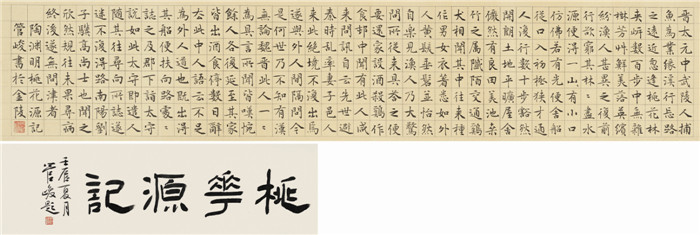 晉太元中武陵人捕
魚為業緣溪行忘路
之遠近忽逢桃花林
夾岸數百步中無雜
樹芳草鮮美落英繽
紛漁人甚異之復前
行欲窮其林林盡水
源便得一山山有小口
彷彿若有光便舍船
從口入初極狹才通
人復行數十步豁然
開朗土地平曠屋舍
儼然有良田美池桑
竹之屬阡陌交通雞
犬相聞其中往來種
作男女衣著悉如外
人黃髮垂髫並怡然
自樂見漁人乃大驚
問所從來具答之便
要還家設酒殺雞作
食村中聞有此人咸
來問訊自云先世避
秦時亂率妻子邑人
來此絕境不復出焉
遂與外人間隔問今
是何世乃不知有漢
無論魏晉此人一一
為具言所聞皆嘆惋
餘人各復延至其家
皆出酒食停數日辭
去此中人語云不足
為外人道也既出得
其船便扶向路處處
誌之及郡下詣太守
說如此太守即遣人
隨其往尋向所誌遂
迷不復得路南陽劉
子驥高尚士也聞之
欣然規往未果尋病
終後遂無問津者
陶淵明桃花源記
管峻書於金陵
桃花源記
壬辰夏月
管峻題